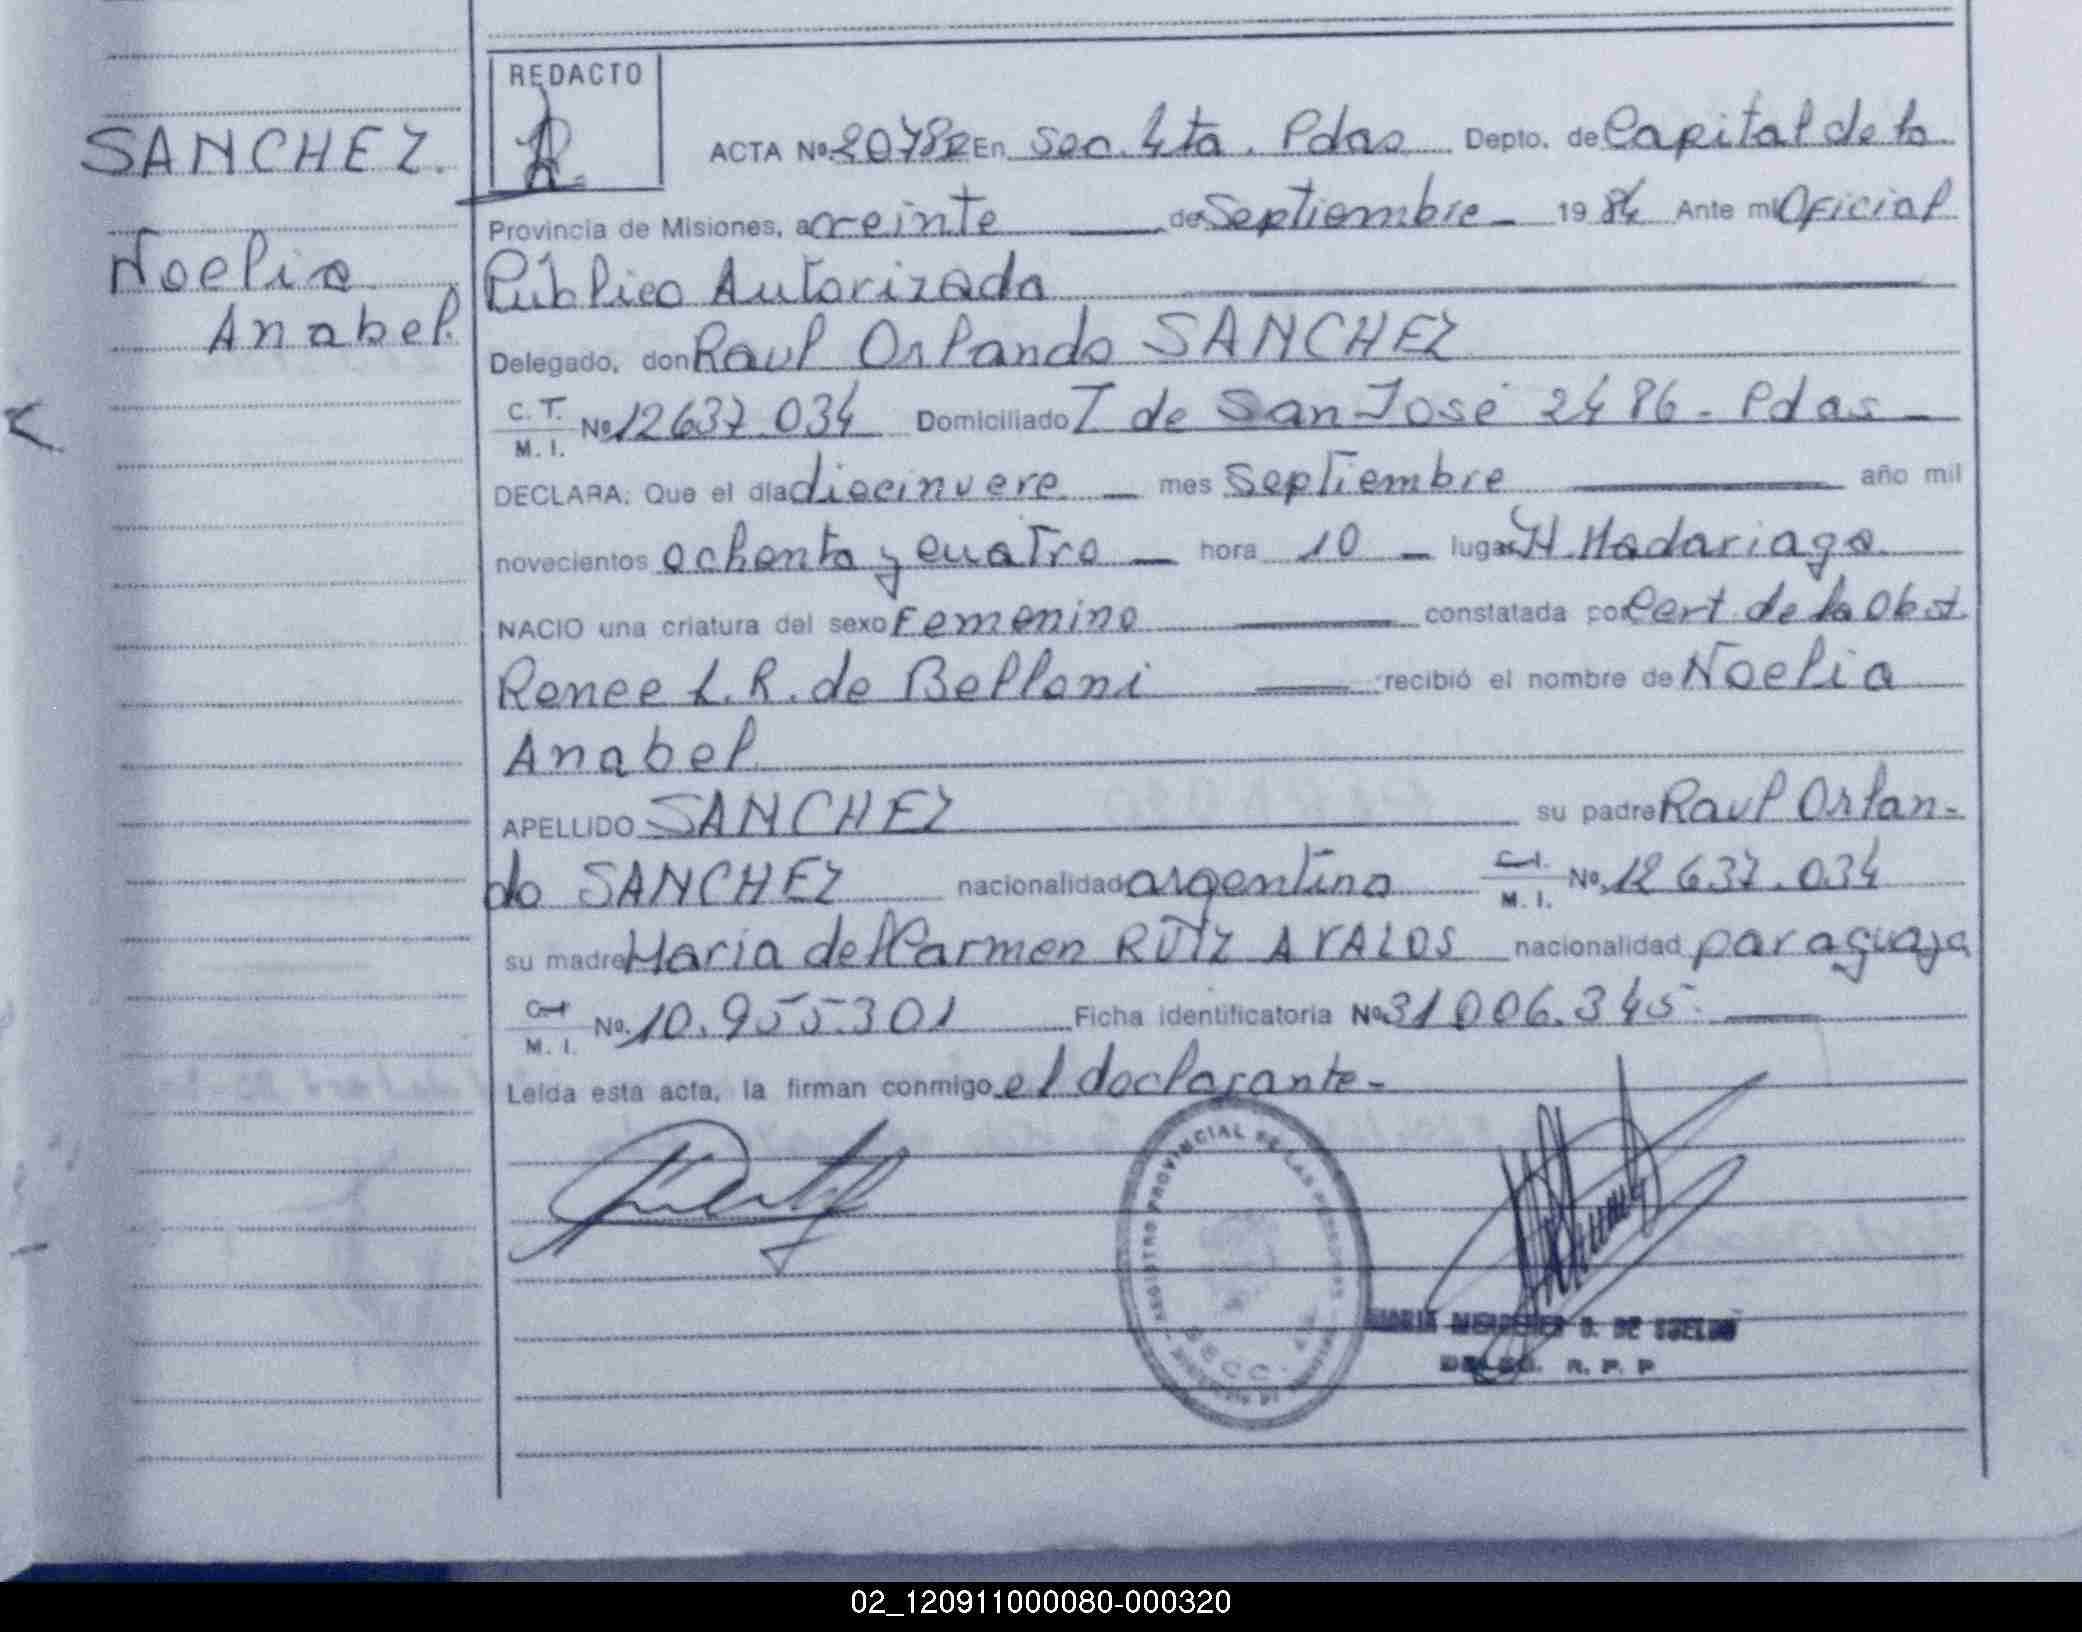 SANCHEZ.
Noelia
Anabel.
REDACTO
ACTA Nº 2078² En Sec. 4ta. Pdas Depto. de Capital de la
Provincia de Misiones, a veinte de Septiembre 19 84 Ante mi Oficial
Público Autorizada
Delegado, don Raul Orlando SANCHEZ
C. T. M. I. Nº 12637.034 Domiciliado T de San José 2486 - Pdas -
DECLARA: Que el día diecinueve mes Septiembre año mil
novecientos ochenta y cuatro hora 10 lugar H. Madariaga
NACIO una criatura del sexo Femenino constatada por Cert de la Obst
Renee L. R. de Belloni recibió el nombre de Noelia
Anabel
APELLIDO SANCHEZ su padre Raul Orlan-
do SANCHEZ nacionalidad argentino C.I. M. I. Nº 12637.034
su madre Maria del Carmen RUIZ AVALOS nacionalidad paraguaya
C.I. M. I. Nº. 10.955.301 Ficha identificatoria Nº 31006.345.
Leída esta acta, la firman conmigo el declarante -
REGISTRO PROVINCIAL DE LAS PERSONAS
SECC. 4ta
DE SUELDO
DELEG. R. P. P
02_120911000080-000320